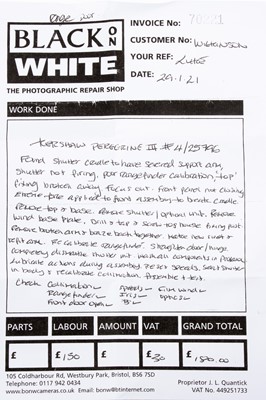 BLACK ON
WHITE
THE PHOTOGRAPHIC REPAIR SHOP
INVOICE No:
CUSTOMER No: Wilkinson
YOUR REF:
DATE: 29.1.21
WORK DONE
KERSHAW PEREGRINE III #4/25796
Found shutter cradle to have severed support arm,
Shutter not firing, poor rangefinder calibration, top
fixing broken away focus out. Front panel not closing
extreme force applied to front assembly to break cradle.
Remove top & base. Remove shutter/optical unit. Remove
wind base plate. Drill & tap & screw top house fixing
Remove broken arm & braze back together. Make new inner &
right arm. Recalibrate rangefinder. Straighten door/hinges
completely dismantle shutter unit
lubricate actions during assembly. Reset speeds. Seat shutter
in body & recalibrate collimation. Assemble & test.
Check Collimation Speeds Film wind
Rangefinder Iris Optics
Front door open
PARTS LABOUR AMOUNT VAT GRAND TOTAL
£ £ 150 £ £ 30 £ 180.00
105 Coldharbour Rd, Westbury Park, Bristol, BS6 7SD
Telephone: 0117 942 0434 Proprietor J. L. Quantick
www.bonwcameras.co.uk Email: bonw@btinternet.com VAT No: 449251733